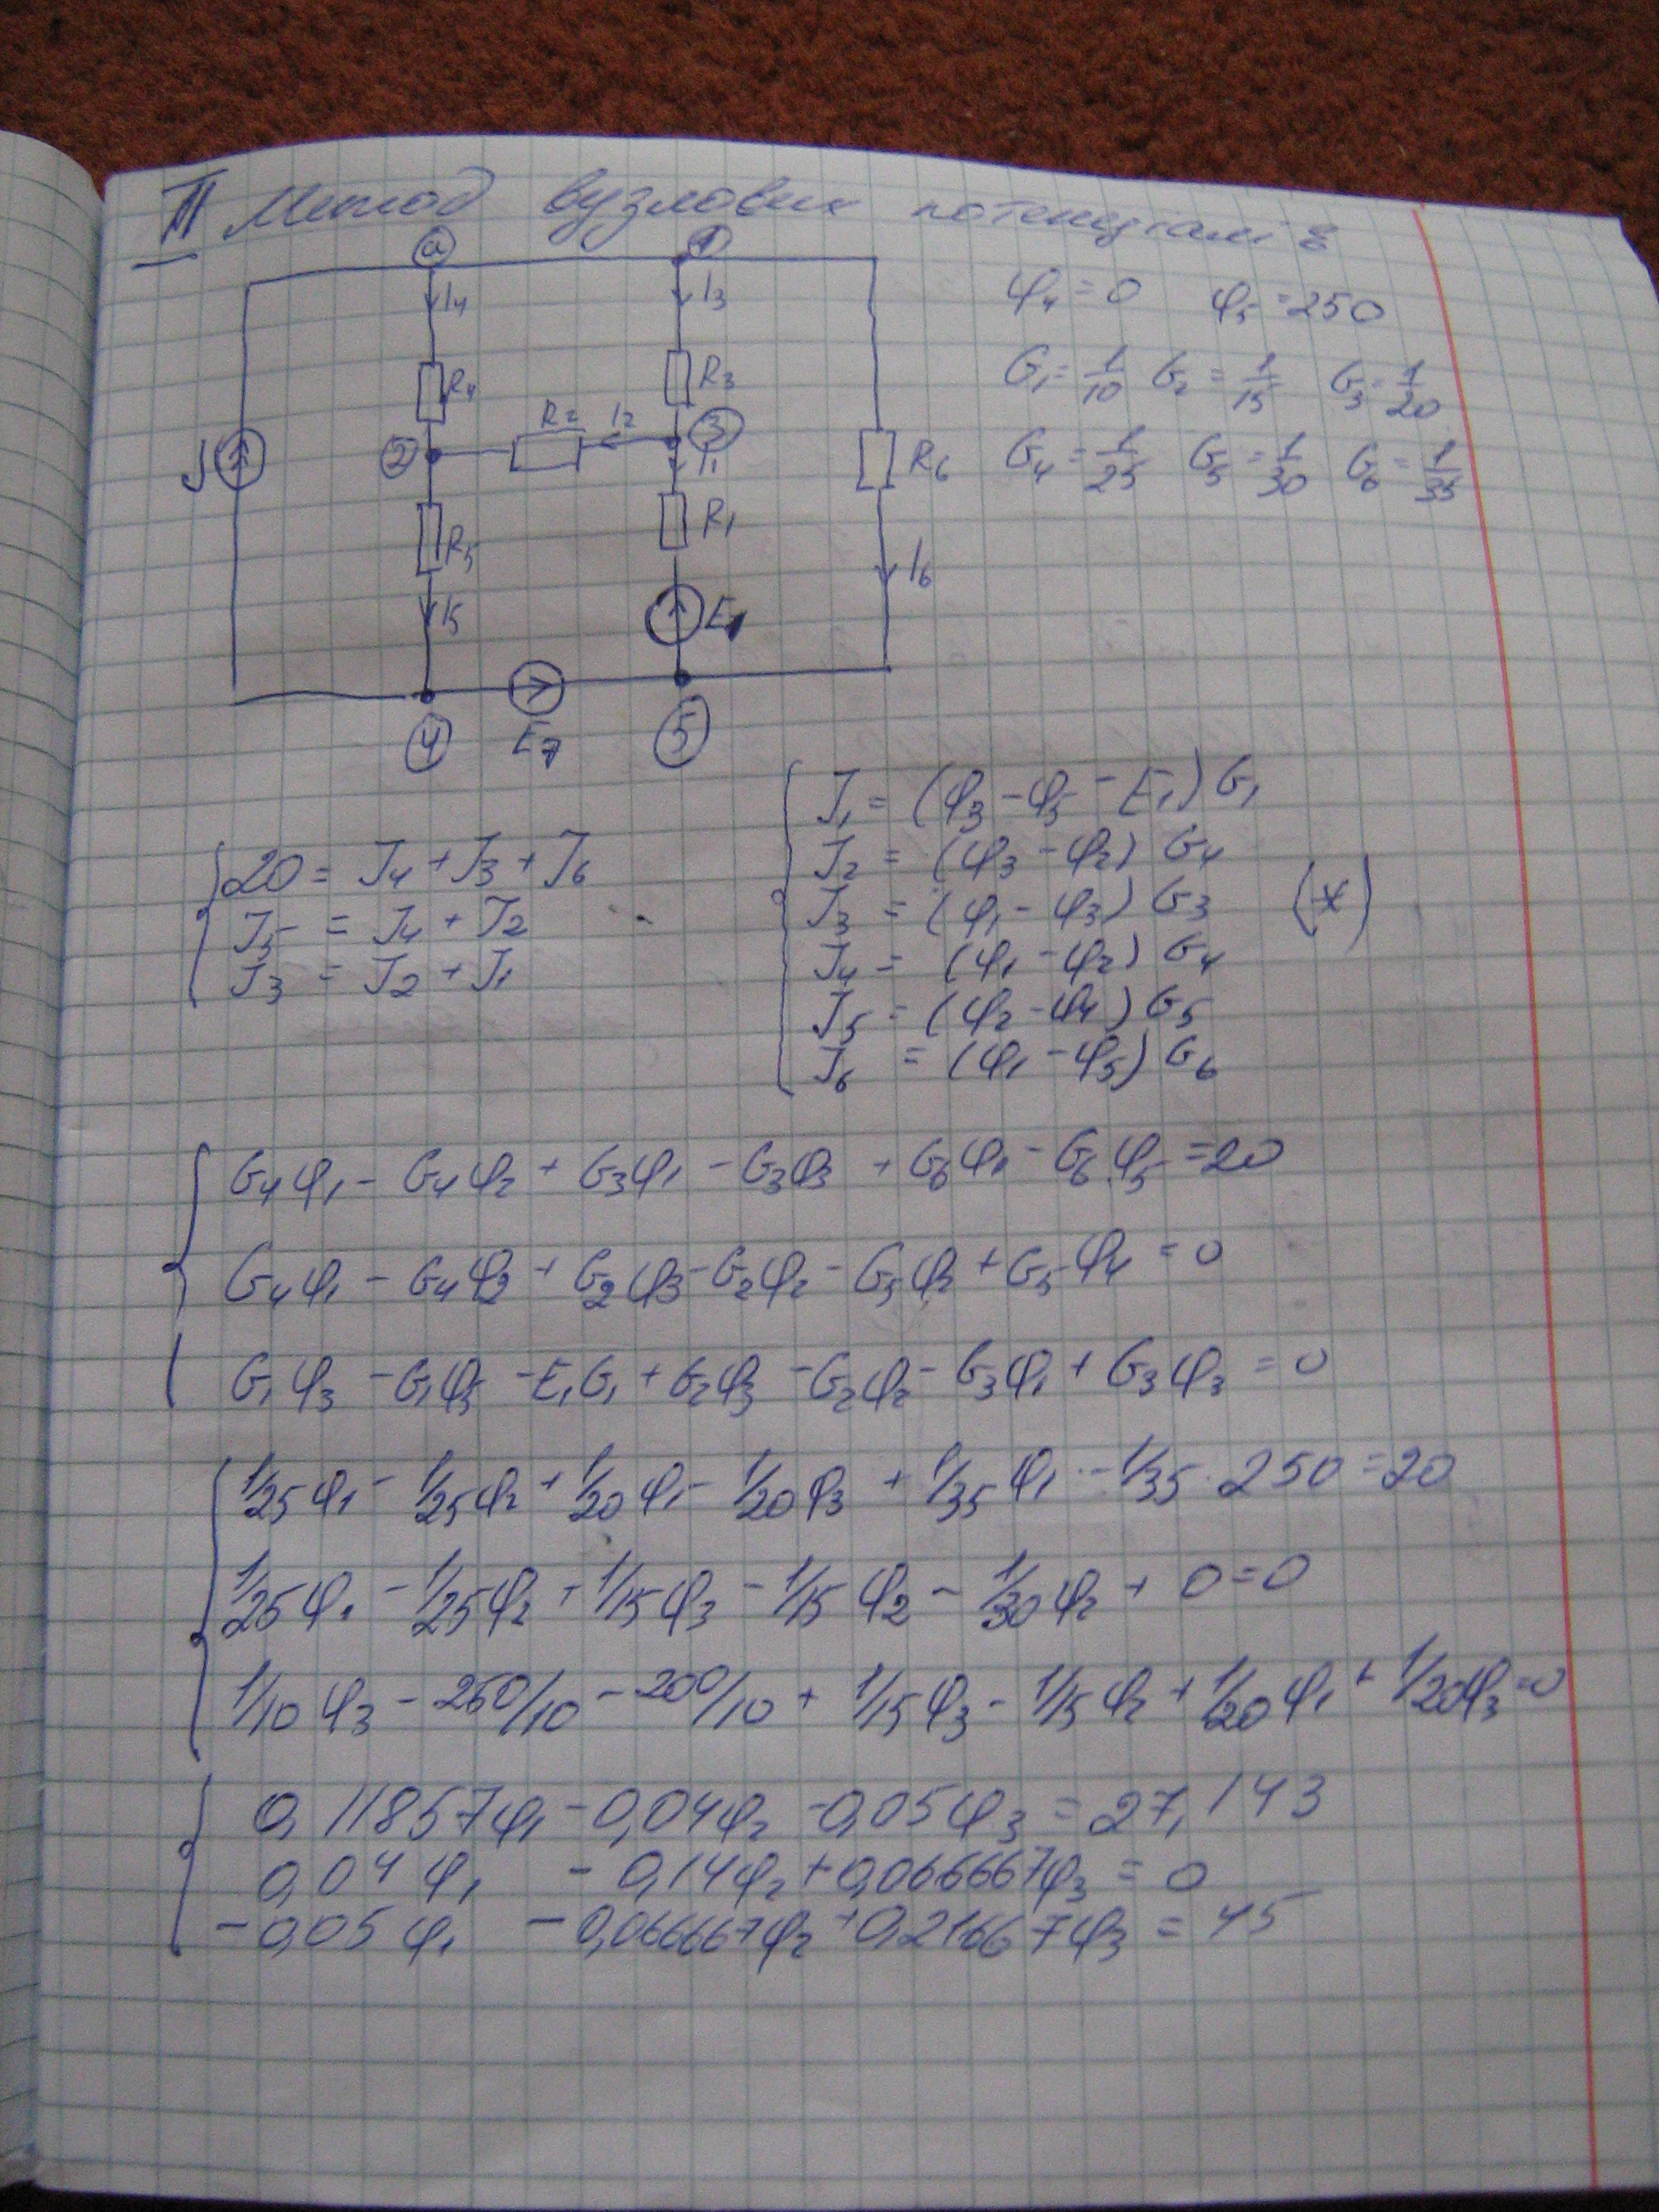 III Метод вузлових потенціалів
a 1
I4 I3
φ4 = 0 φ5 = 250
G1 = 1/10 G2 = 1/15 G3 = 1/20
R4 R3
R2 I2
J 2 3 R6
G4 = 1/25 G5 = 1/30 G6 = 1/35
I1
R5 R1
I6
I5 E1
4 E7 5
20 = J4 + J3 + J6
J5 = J4 + J2
J3 = J2 + J1
J1 = (φ3 - φ5 - E1) G1
J2 = (φ3 - φ2) G4
J3 = (φ1 - φ3) G3 (*)
J4 = (φ1 - φ2) G4
J5 = (φ2 - φ4) G5
J6 = (φ1 - φ5) G6
G4φ1 - G4φ2 + G3φ1 - G3φ3 + G6φ1 - G6φ5 = 20
G4φ1 - G4φ2 + G2φ3 - G2φ2 - G5φ2 + G5φ4 = 0
G1φ3 - G1φ5 - E1G1 + G2φ3 - G2φ2 - G3φ1 + G3φ3 = 0
1/25φ1 - 1/25φ2 + 1/20φ1 - 1/20φ3 + 1/35φ1 - 1/35 · 250 = 20
1/25φ1 - 1/25φ2 + 1/15φ3 - 1/15φ2 - 1/30φ2 + 0 = 0
1/10φ3 - 250/10 - 200/10 + 1/15φ3 - 1/15φ2 + 1/20φ1 + 1/20φ3 = 0
0,11857φ1 - 0,04φ2 - 0,05φ3 = 27,143
0,04φ1 - 0,14φ2 + 0,066667φ3 = 0
-0,05φ1 - 0,066667φ2 + 0,21667φ3 = 45